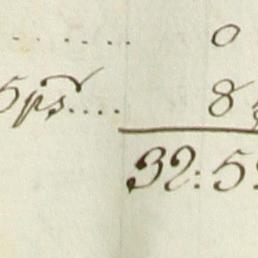 ..... 0
5ps.... 8
32:5